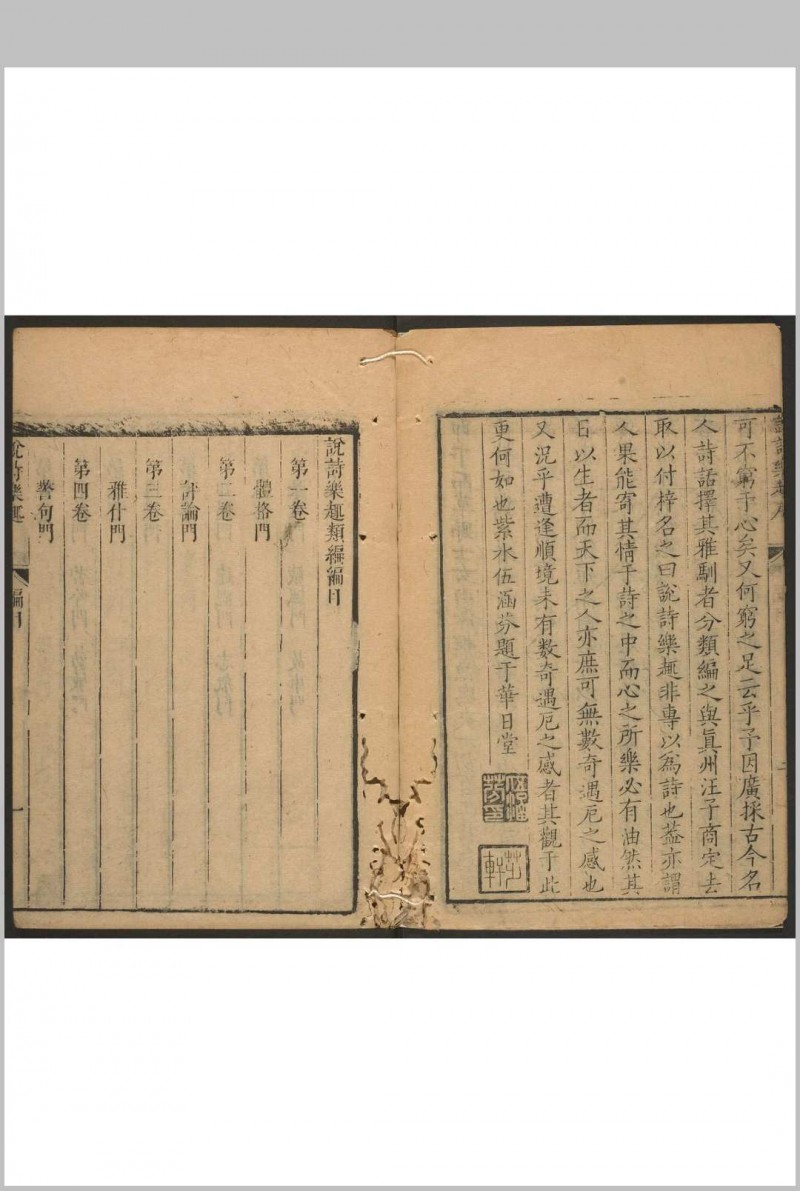 可不窮于心矣又何窮之足云乎予因廣採古今名
人詩話擇其雅馴者分類編之與眞州汪子商定去
取以付梓名之曰說詩樂趣非專以為詩也葢亦謂
人果能寄其情于詩之中而心之所樂必有油然其
日以生者而天下之人亦庶可無數奇遇厄之感也
又況乎遭逢順境未有數奇遇厄之感者其觀于此
更何如也紫水伍涵芬題于華日堂
說詩樂趣類編編目
第一卷
體格門
第二卷
評論門
第三卷
雅什門
第四卷
警句門
說詩樂趣
編目
一